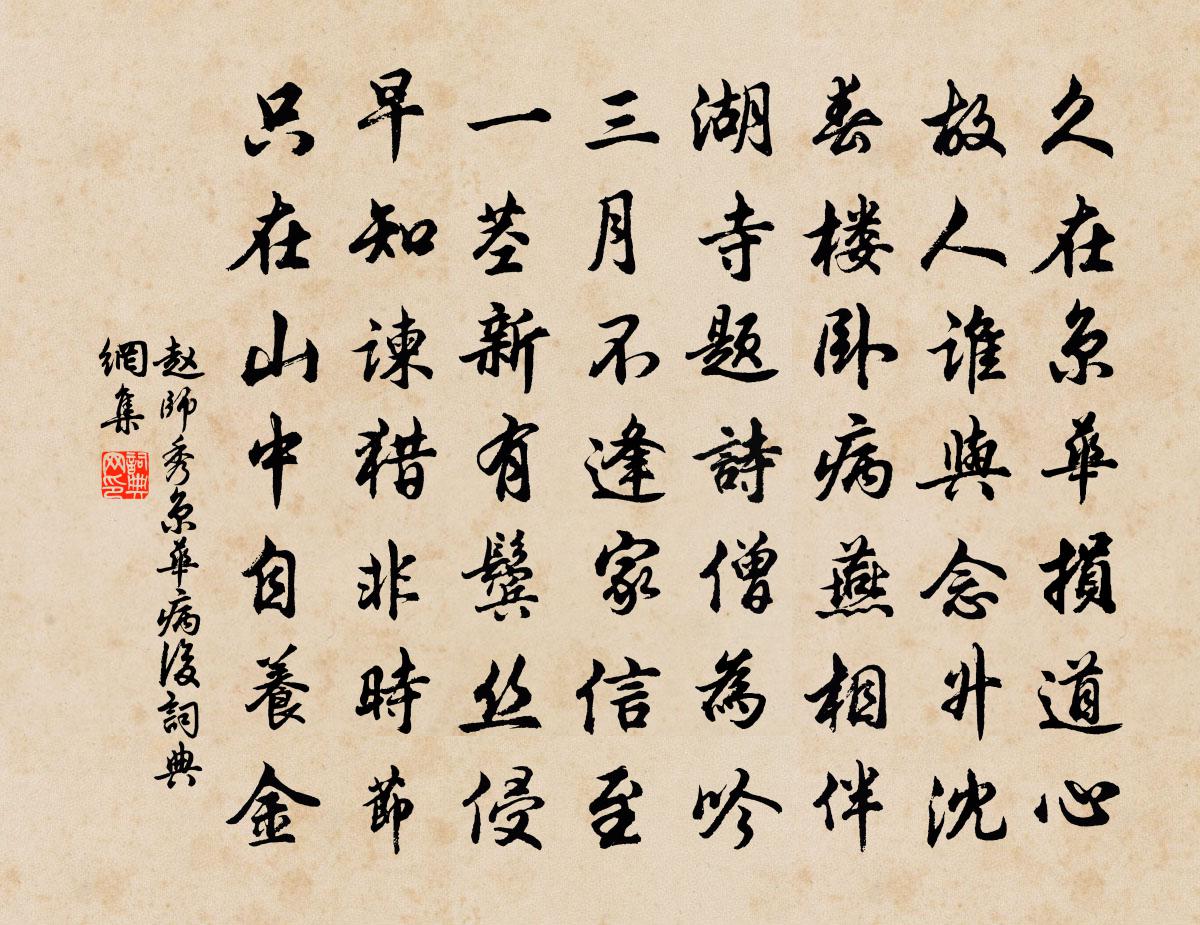 久在京華損道心
故人誰與念升沈
春楼卧病燕相伴
湖寺题詩僧為吟
三月不逢家信至
一茎新有鬓丝侵
早知諫猎非時節
只在山中自養金
赵師秀京華病後詞典
網集
詞典网印